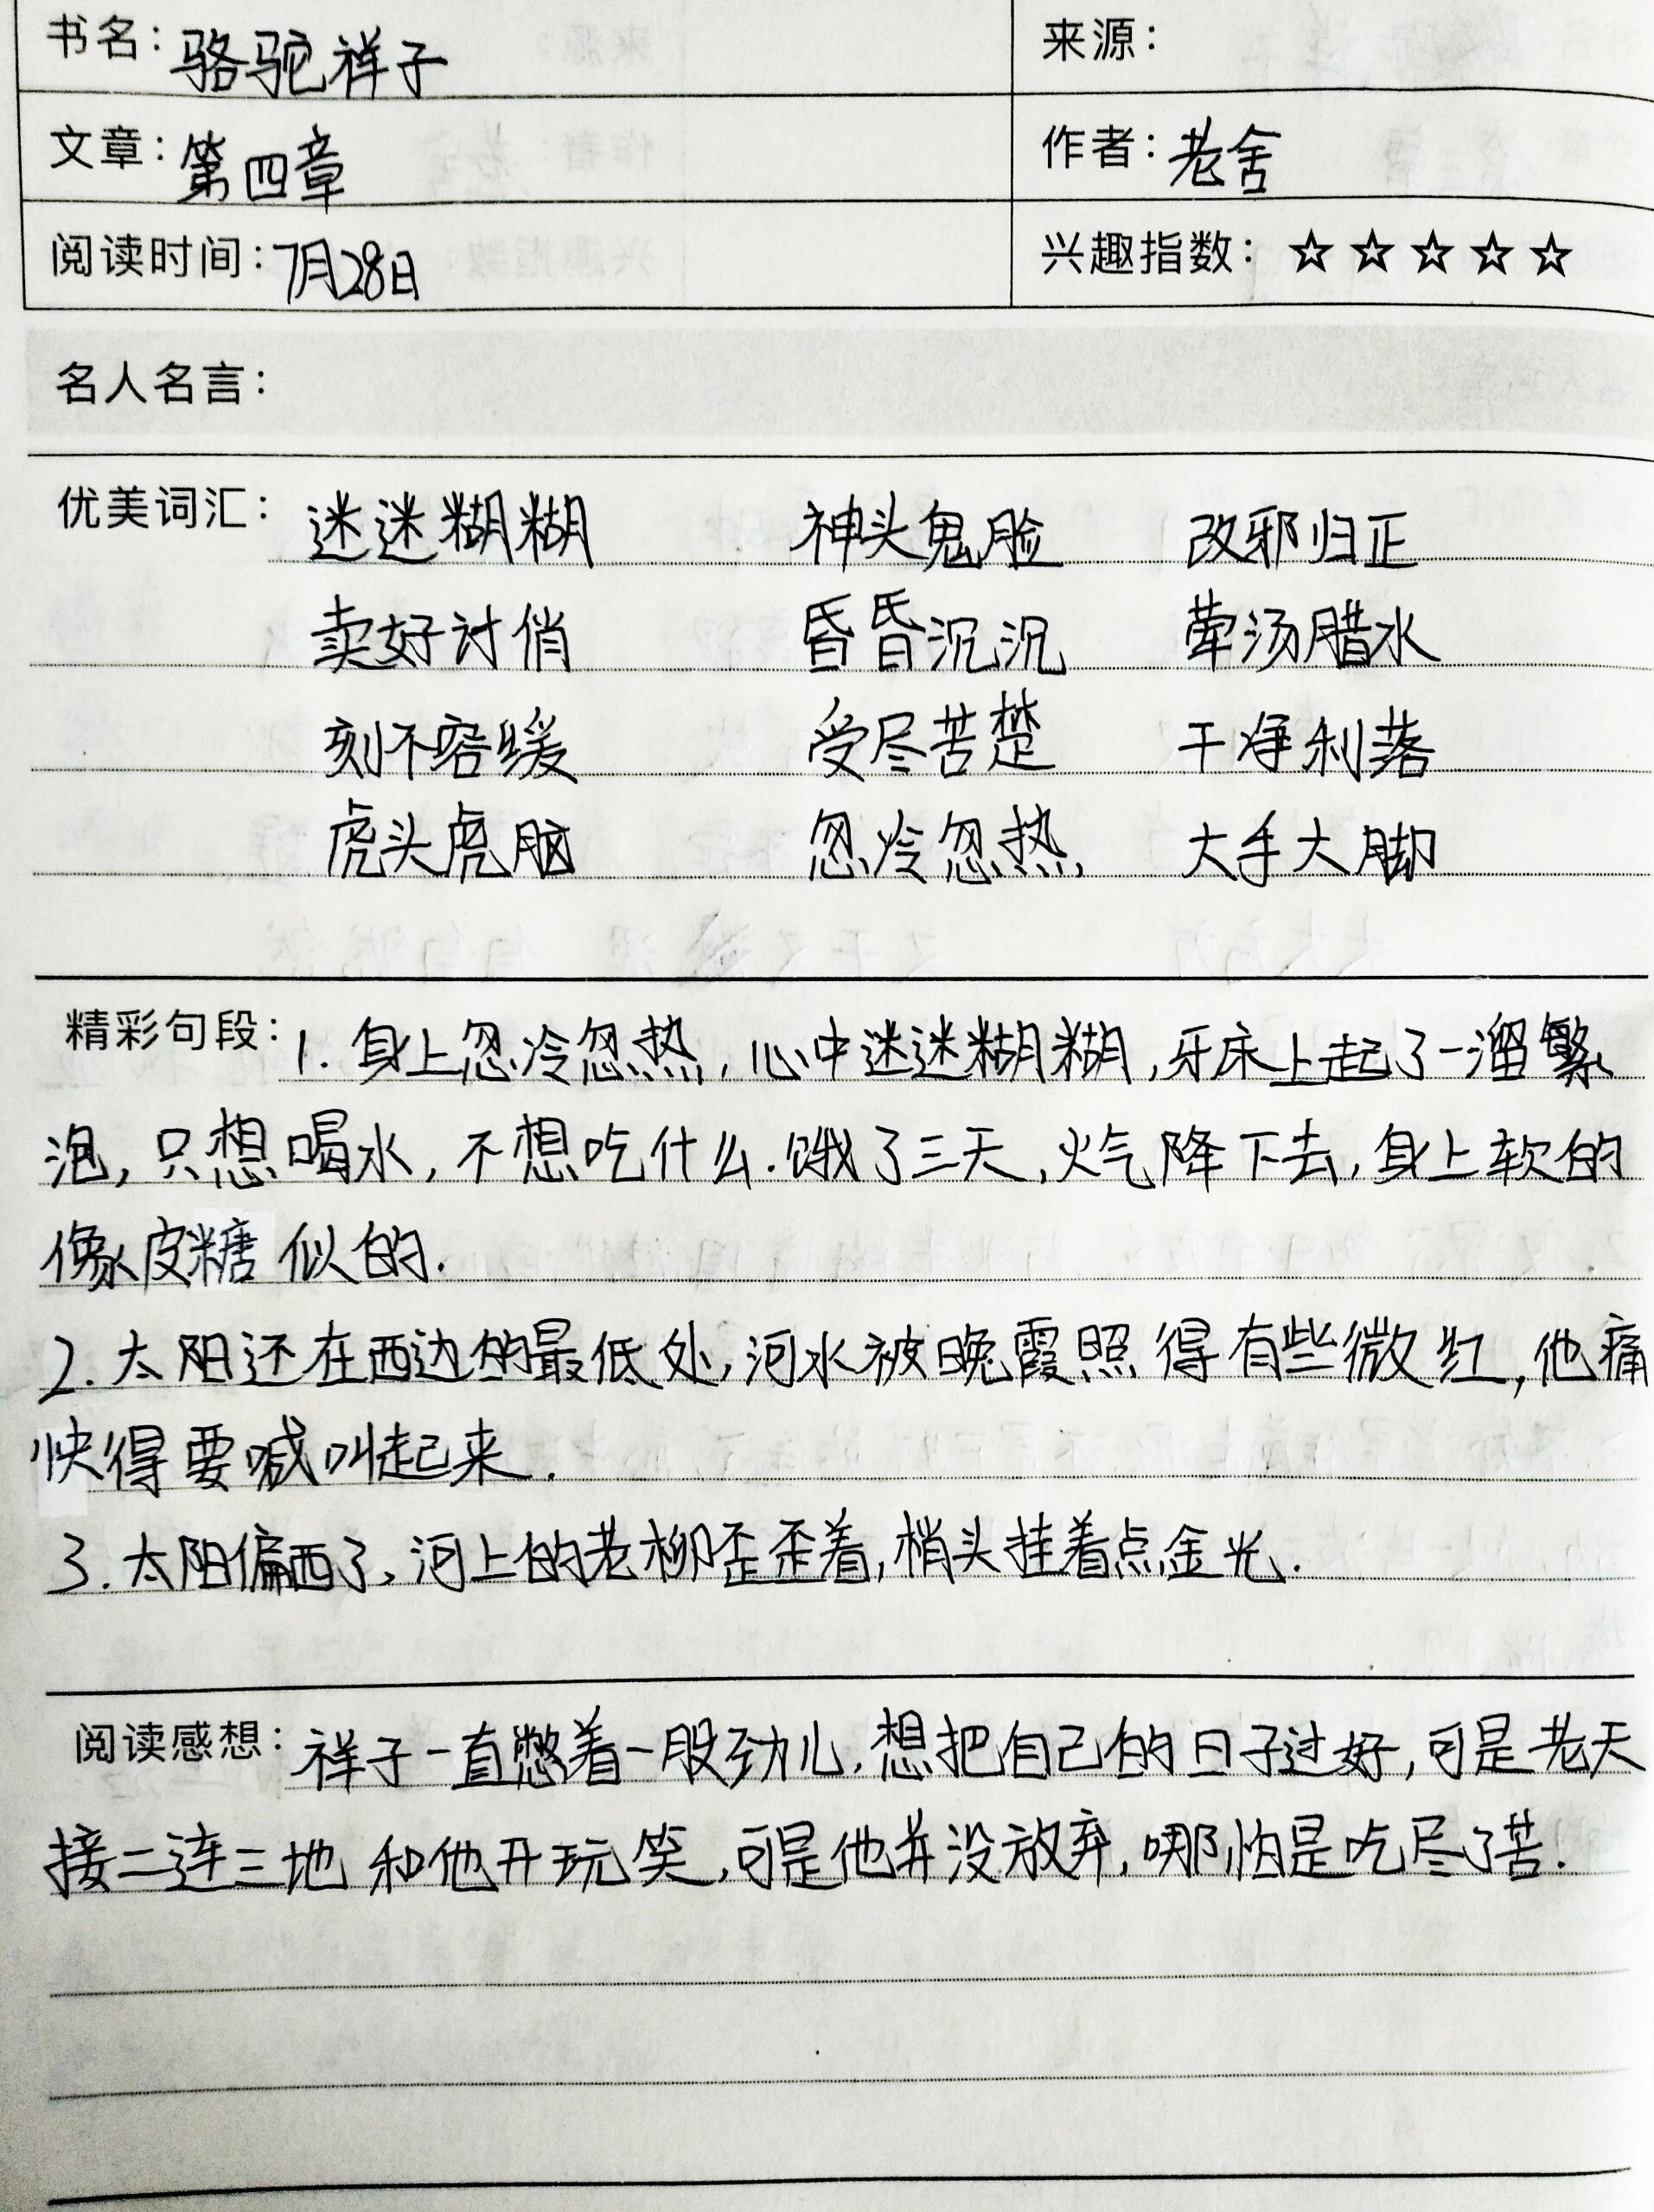 书名：骆驼祥子 来源：
文章：第四章 作者：老舍
阅读时间：7月28日 兴趣指数：☆☆☆☆☆
名人名言：
优美词汇：迷迷糊糊 神头鬼脸 改邪归正
卖好讨俏 昏昏沉沉 荤汤腊水
刻不容缓 受尽苦楚 干净利落
虎头虎脑 忽冷忽热 大手大脚
精彩句段：1.身上忽冷忽热，心中迷迷糊糊，牙床上起了一溜繁
泡，只想喝水，不想吃什么.饿了三天，火气降下去，身上软的
像皮糖似的.
2.太阳还在西边的最低处，河水被晚霞照得有些微红，他痛
快得要喊叫起来.
3.太阳偏西了，河上的老柳歪歪着，梢头挂着点金光.
阅读感想：祥子一直憋着一股劲儿，想把自己的日子过好，可是老天
接二连三地和他开玩笑，可是他并没放弃，哪怕是吃尽了苦.